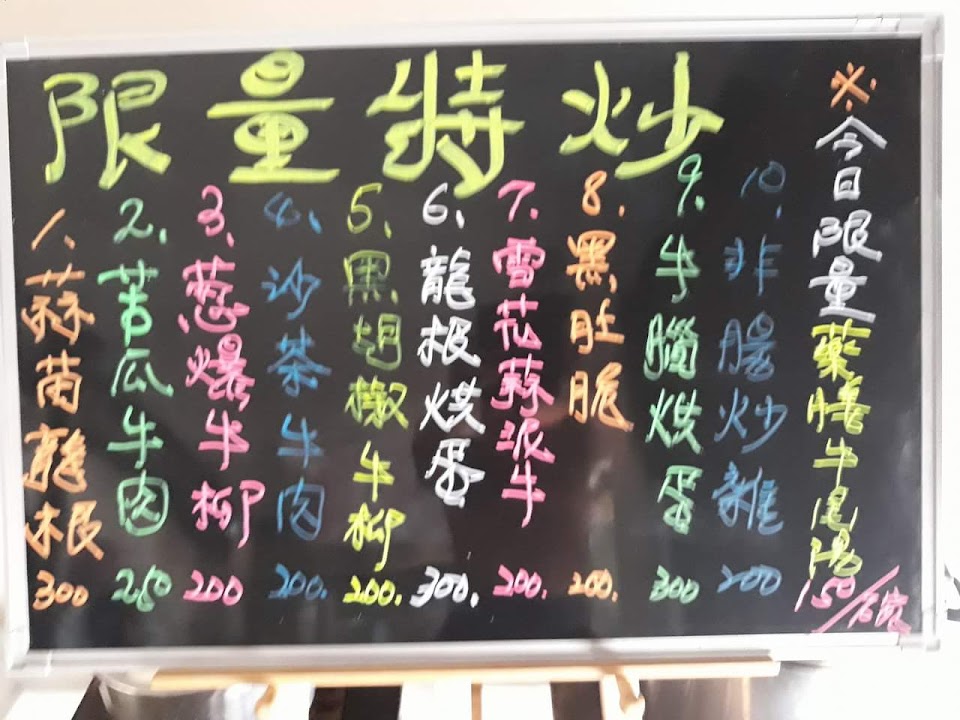 限量特炒
1.蒜苗龍根 300
2.苦瓜牛肉 250
3.蔥爆牛柳 200
4.沙茶牛肉 200.
5.黑胡椒牛柳 200.
6.龍根烘蛋 300.
7.雪花蒜泥牛 200.
8.黑肚脆 200.
9.牛腦烘蛋 300
10.韭腸炒 200
※今日限量藥膳牛尾湯
150/